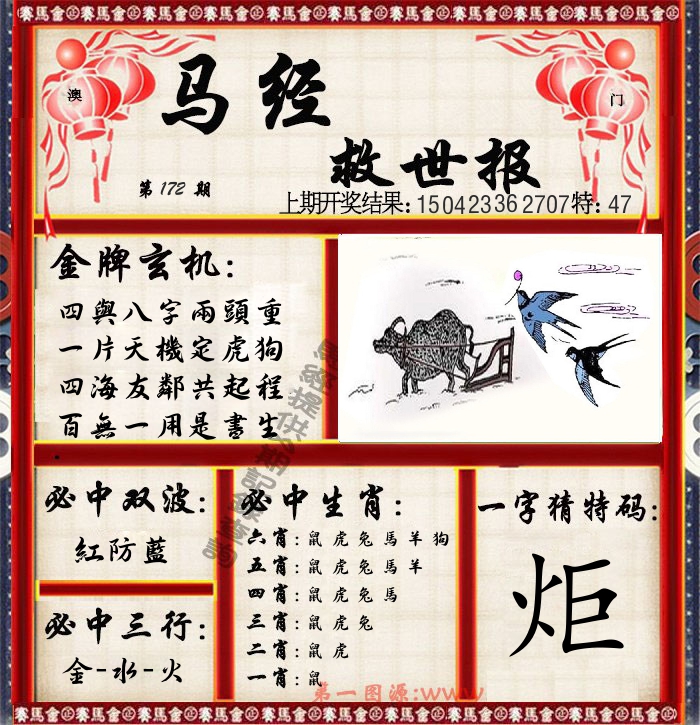 正賽馬會正賽馬會正賽馬會正賽馬會正賽馬會正賽馬會
澳
门
马经
救世报
第172期
上期开奖结果:150423362707特:47
金牌玄机:
四與八字兩頭重
一片天機定虎狗
四海友鄰共起程
百無一用是書生
必中双波:
紅防藍
必中三行:
金-水-火
必中生肖:
六肖:鼠虎兔馬羊狗
五肖:鼠虎兔馬羊
四肖:鼠虎兔馬
三肖:鼠虎兔
二肖:鼠虎
一肖:鼠
一字猜特码:
炬
第一图源:www